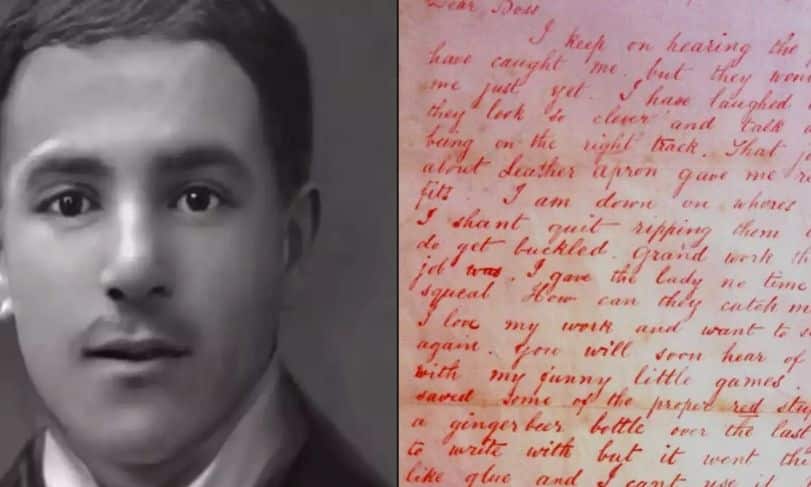 Dear Boss
I keep on hearing the
have caught me. but they won
me just yet. I have laughed
they look so clever and talk
being on the right track. That
about Leather Apron gave me
fits. I am down on whores
I shant quit ripping them
do get buckled. Grand work th
job was. I gave the lady no time
squeal. How can they catch m
I love my work and want to s
again. you will soon hear of
with my funny little games.
saved some of the proper red stu
a gingerbeer bottle over the last
to write with but it went thi
like glue and I cant use it